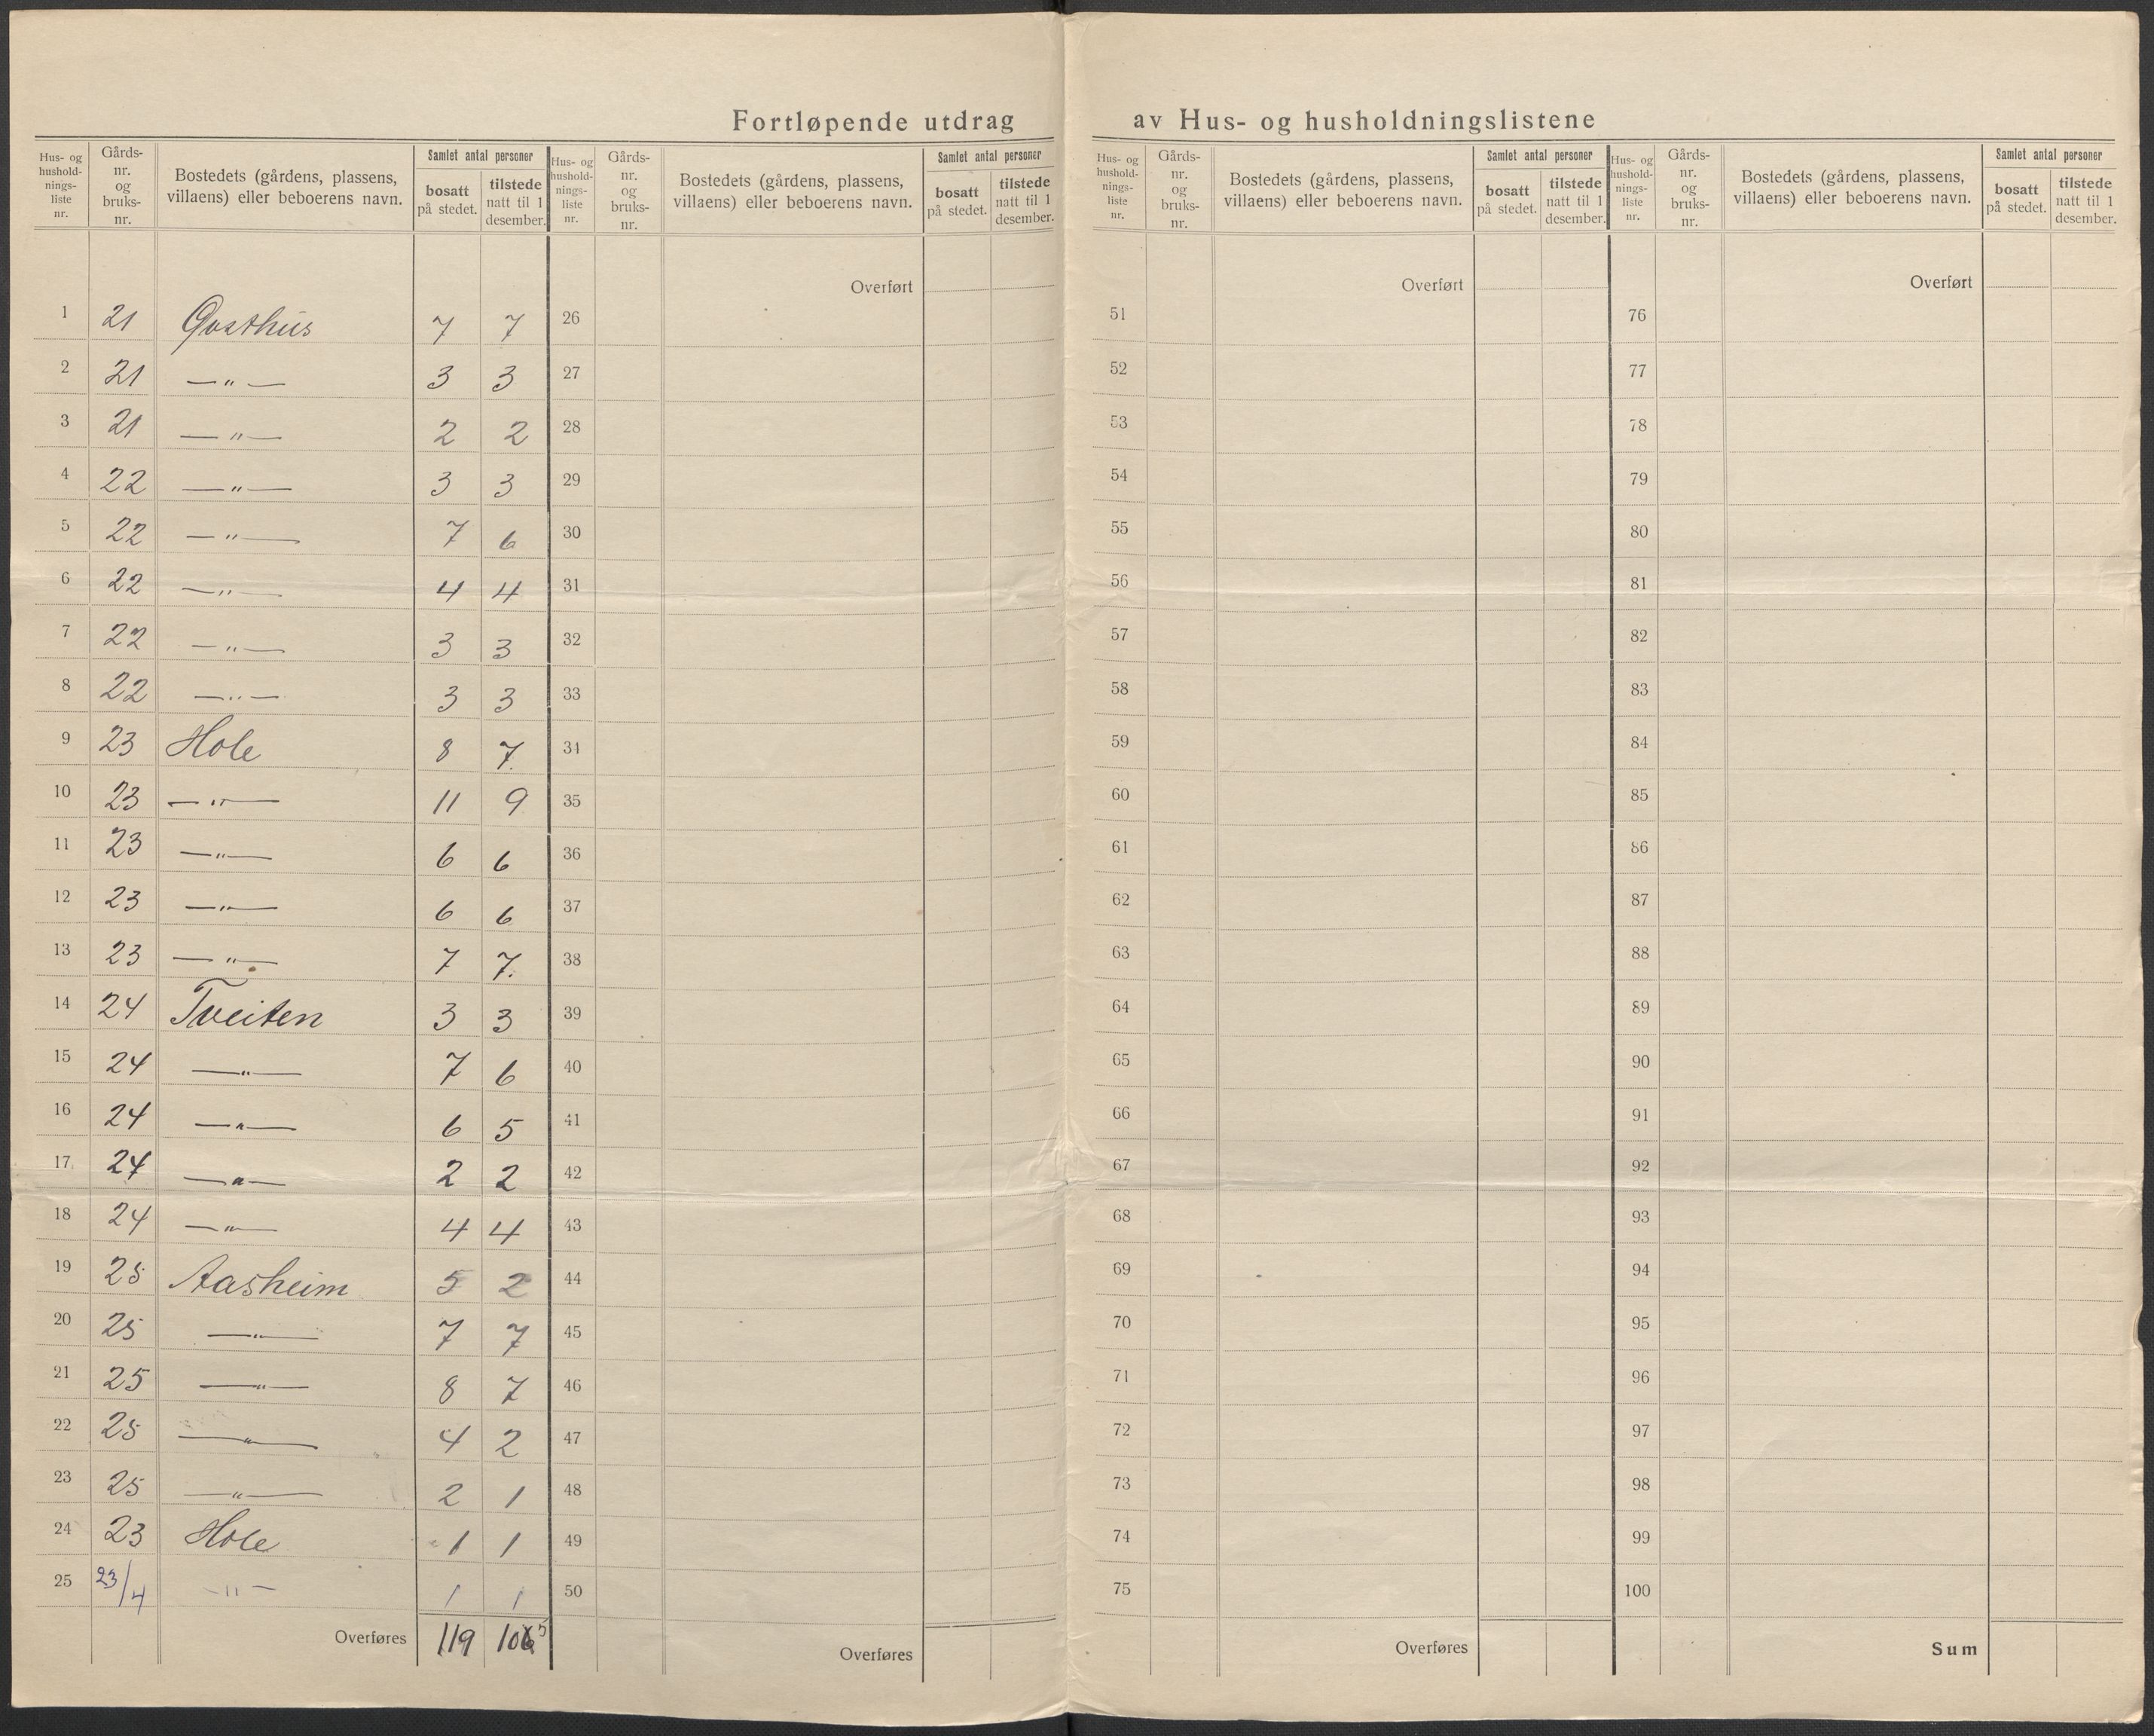 Fortløpende utdrag av Hus- og husholdningslistene
Hus- og husholdnings-liste nr. Gårds-nr. og bruks-nr. Bostedets (gårdens, plassens, villaens) eller beboerens navn. Samlet antal personer bosatt på stedet. tilstede natt til 1 desember.
Hus- og husholdnings-liste nr. Gårds-nr. og bruks-nr. Bostedets (gårdens, plassens, villaens) eller beboerens navn. Samlet antal personer bosatt på stedet. tilstede natt til 1 desember.
Hus- og husholdnings-liste nr. Gårds-nr. og bruks-nr. Bostedets (gårdens, plassens, villaens) eller beboerens navn. Samlet antal personer bosatt på stedet. tilstede natt til 1 desember.
Hus- og husholdnings-liste nr. Gårds-nr. og bruks-nr. Bostedets (gårdens, plassens, villaens) eller beboerens navn. Samlet antal personer bosatt på stedet. tilstede natt til 1 desember.
Overført Overført Overført
1 21 Qvasthus 7 7 26 51 76
2 21 —"— 3 3 27 52 77
3 21 —"— 2 2 28 53 78
4 22 —"— 3 3 29 54 79
5 22 —"— 7 6 30 55 80
6 22 —"— 4 4 31 56 81
7 22 —"— 3 3 32 57 82
8 22 —"— 3 3 33 58 83
9 23 Hole 8 7 34 59 84
10 23 —"— 11 9 35 60 85
11 23 —"— 6 6 36 61 86
12 23 —"— 6 6 37 62 87
13 23 —"— 7 7. 38 63 88
14 24 Tveiten 3 3 39 64 89
15 24 —"— 7 6 40 65 90
16 24 —"— 6 5 41 66 91
17 24 —"— 2 2 42 67 92
18 24 —"— 4 4 43 68 93
19 25 Aasheim 5 2 44 69 94
20 25 —"— 7 7 45 70 95
21 25 —"— 8 7 46 71 96
22 25 —"— 4 2 47 72 97
23 25 —"— 2 1 48 73 98
24 23 Hole 1 1 49 74 99
25 23/4 —"— 1 1 50 75 100
Overføres 119 106 5 Overføres Overføres Sum